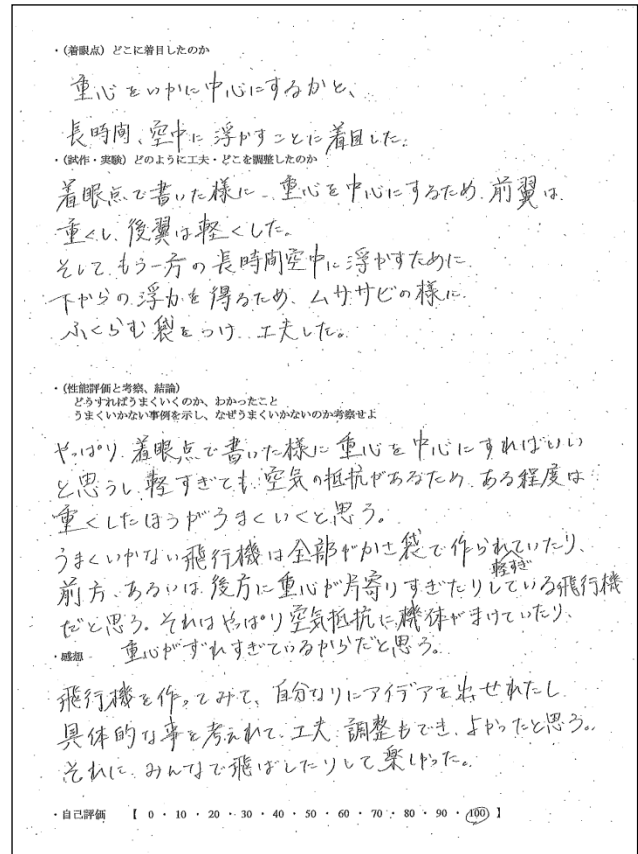 ・(着眼点) どこに着目したのか
重心をいかに中心にするかと、
長時間、空中に浮かすことに着目した。
・(試作・実験) どのように工夫・どこを調整したのか
着眼点で書いた様に、重心を中心にするため、前翼は
重くし、後翼は軽くした。
そして、もう一方の長時間空中に浮かすために
下からの浮力を得るため、ムササビの様に
ふくらむ袋をつけ、工夫した。
・(性能評価と考察、結論)
どうすればうまくいくのか、わかったこと
うまくいかない事例を示し、なぜうまくいかないのか考察せよ
やっぱり、着眼点で書いた様に重心を中心にすればいい
と思うし、軽すぎても、空気の抵抗があるため、ある程度は
重くしたほうがうまくいくと思う。
うまくいかない飛行機は全部がかさ袋で作られていたり、
軽すぎ
前方、あるいは、後方に重心が片寄りすぎたりしている飛行機
だと思う。それはやっぱり空気抵抗に機体がまけていたり、
重心がずれすぎているからだと思う。
・感想
飛行機を作ってみて、自分なりにアイデアを出せれたし
具体的な事を考えれて、工夫、調整もでき、よかったと思う。
それに、みんなで飛ばしたりして楽しかった。
・自己評価 【 0 ・ 10 ・ 20 ・ 30 ・ 40 ・ 50 ・ 60 ・ 70 ・ 80 ・ 90 ・ 100 】